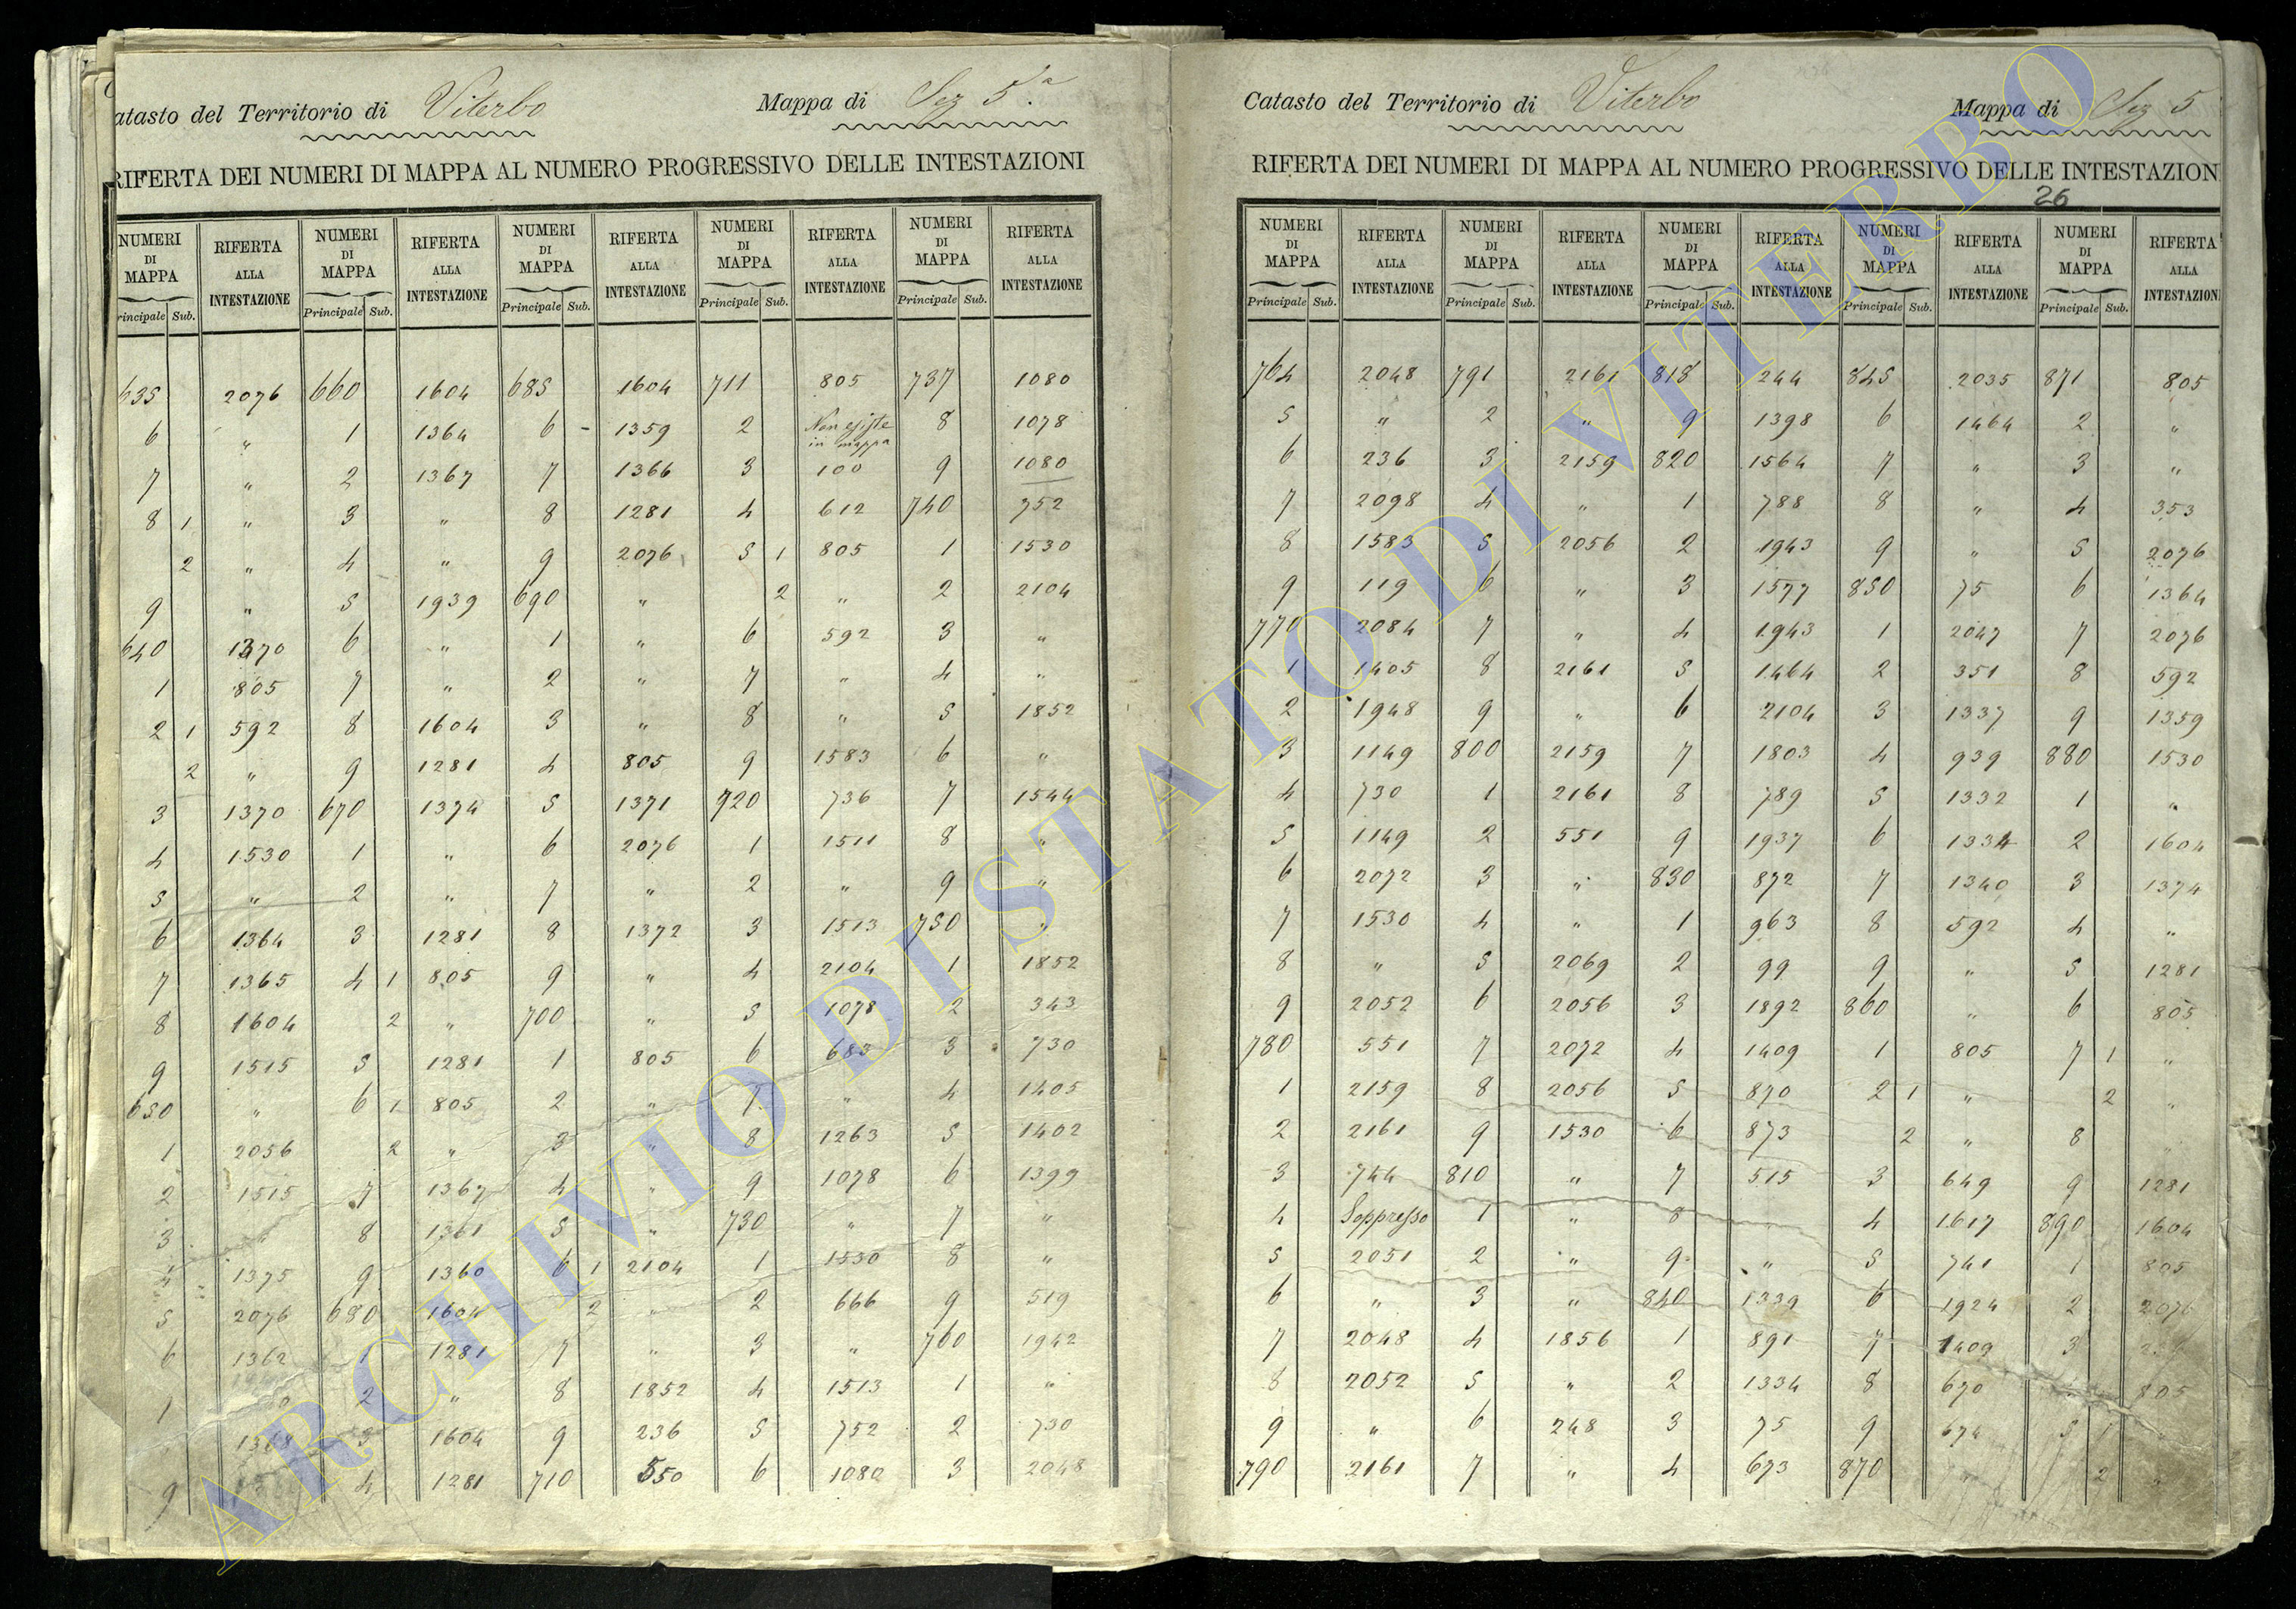 Catasto del Territorio di Viterbo Mappa di Sez 5.a
RIFERTA DEI NUMERI DI MAPPA AL NUMERO PROGRESSIVO DELLE INTESTAZIONI
NUMERI DI MAPPA RIFERTA ALLA INTESTAZIONE NUMERI DI MAPPA RIFERTA ALLA INTESTAZIONE NUMERI DI MAPPA RIFERTA ALLA INTESTAZIONE NUMERI DI MAPPA RIFERTA ALLA INTESTAZIONE NUMERI DI MAPPA RIFERTA ALLA INTESTAZIONE
Principale Sub. Principale Sub. Principale Sub. Principale Sub. Principale Sub.
635 2076 660 1604 685 1604 711 805 737 1080
6 " 1 1364 6 - 1359 2 Non esiste in mappa 8 1078
7 " 2 1367 7 1366 3 100 9 1080
8 1 " 3 " 8 1281 4 612 740 752
2 " 4 " 9 2076 5 1 805 1 1530
9 " 5 1939 690 " 2 " 2 2104
640 1370 6 " 1 " 6 592 3 "
1 805 7 " 2 " 7 " 4 "
2 1 592 8 1604 3 " 8 " 5 1852
2 " 9 1281 4 805 9 1583 6 "
3 1370 670 1374 5 1371 720 736 7 1544
4 1530 1 " 6 2076 1 1511 8 "
5 " 2 " 7 " 2 " 9 "
6 1364 3 1281 8 1372 3 1513 750 "
7 1365 4 1 805 9 " 4 2104 1 1852
8 1604 2 " 700 " 5 1078 2 343
9 1515 5 1281 1 805 6 683 3 730
650 " 6 1 805 2 " 7 " 4 1405
1 2056 2 " 3 " 8 1263 5 1402
2 1515 7 1367 4 " 9 1078 6 1399
3 " 8 1361 5 " 730 " 7 "
4 1375 9 1360 6 1 2104 1 1530 8 "
5 2076 680 1604 2 " 2 666 9 519
6 1362 1 1281 7 " 3 " 760 1942
2 " 8 1852 4 1513 1 "
1368 3 1604 9 236 5 752 2 730
9 4 1281 710 550 6 1080 3 2048
Catasto del Territorio di Viterbo Mappa di Sez 5
RIFERTA DEI NUMERI DI MAPPA AL NUMERO PROGRESSIVO DELLE INTESTAZION
26
NUMERI DI MAPPA RIFERTA ALLA INTESTAZIONE NUMERI DI MAPPA RIFERTA ALLA INTESTAZIONE NUMERI DI MAPPA RIFERTA ALLA INTESTAZIONE NUMERI DI MAPPA RIFERTA ALLA INTESTAZIONE NUMERI DI MAPPA RIFERTA ALLA INTESTAZION
Principale Sub. Principale Sub. Principale Sub. Principale Sub. Principale Sub.
764 2048 791 2161 818 244 845 2035 871 805
5 " 2 " 9 1398 6 1464 2 "
6 236 3 2159 820 1564 7 " 3 "
7 2098 4 " 1 788 8 " 4 353
8 1583 5 2056 2 1943 9 " 5 2076
9 119 6 " 3 1577 850 75 6 1364
770 2084 7 " 4 1943 1 2047 7 2076
1 1405 8 2161 5 1464 2 351 8 592
2 1948 9 " 6 2104 3 1337 9 1359
3 1149 800 2159 7 1803 4 939 880 1530
4 730 1 2161 8 789 5 1332 1 "
5 1149 2 551 9 1937 6 1334 2 1604
6 2072 3 " 830 872 7 1340 3 1374
7 1530 4 " 1 963 8 592 4 "
8 " 5 2069 2 99 9 " 5 1281
9 2052 6 2056 3 1892 860 " 6 805
780 551 7 2072 4 1409 1 805 7 1 "
1 2159 8 2056 5 870 2 1 " 2 "
2 2161 9 1530 6 873 2 " 8 "
3 744 810 " 7 515 3 649 9 1281
4 Soppresso 1 " 8 4 1617 890 1604
5 2051 2 " 9 " 5 741 1 805
6 " 3 " 840 1339 6 1924 2 2076
7 2048 4 1856 1 891 7 1409 3
8 2052 5 " 2 1334 8 670 805
9 " 6 248 3 75 9 674 5 1
790 2161 7 " 4 673 870 " 2 "
ARCHIVIO DI STATO DI VITERBO